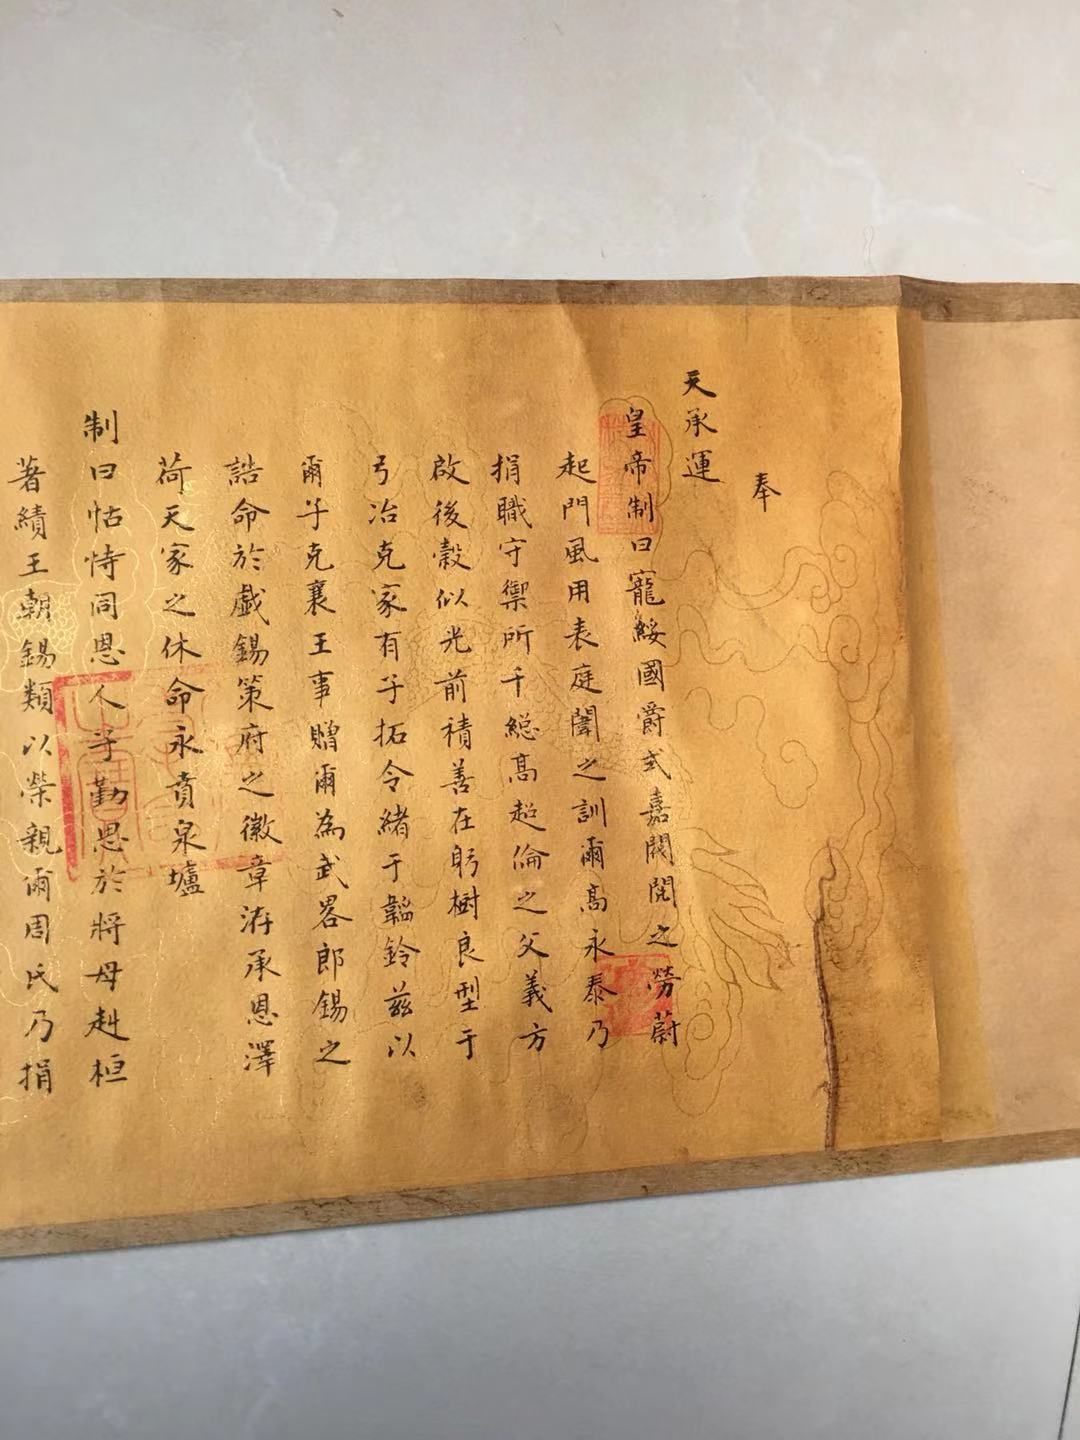 奉
天承運
皇帝制曰寵綏國爵式嘉閥閱之勞蔚
起門風用表庭闈之訓爾高永泰乃
捐職守禦所千總高超倫之父義方
啟後穀似光前積善在躬樹良型于
弓冶克家有子拓令緒于韜鈐茲以
爾子克襄王事贈爾為武畧郎錫之
誥命於戲錫策府之徽章洊承恩澤
荷天家之休命永賁泉壚
制曰怙恃同恩人子勤思於將母赳桓
著績王朝錫類以榮親爾周氏乃捐